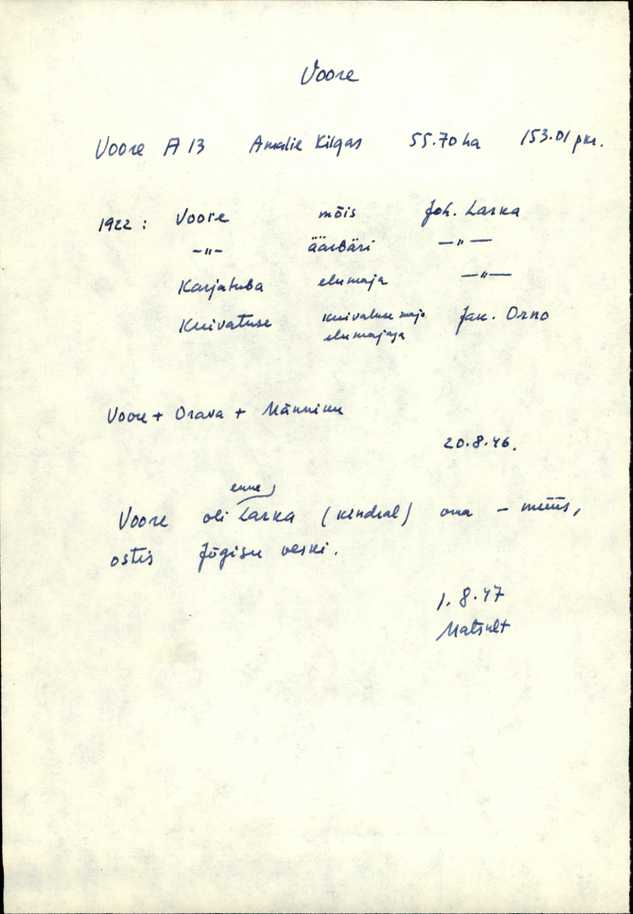 Voore
Voore A 13 Amalie Kilgas 55.70 ha 153.01 pkr.
1922 : Voore mõis Joh. Larka
–"– äärbäri –"–
Karjatuba elumaja –"–
Kuivatuse kuivatuse maja Jak. Orno
elumajaga
Voore + Orava + Männiku
20.8.46.
enne
Voore oli Larka (kindral) oma – müüs,
ostis Jõgisu veski.
1.8.47
Matsult